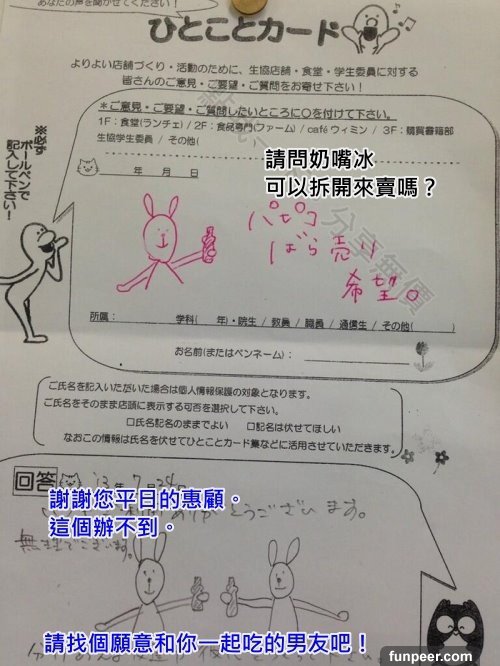 あなたの声を聞かせてください！
ひとことカード
よりよい店舗づくり・活動のために、生協店舗・食堂・学生委員に対する
皆さんのご意見・ご要望・ご質問をお寄せ下さい！
＊ご意見・ご要望・ご質問したいところに○を付けて下さい。
1F：食堂(ランチェ) / 2F：食品専門(ファーム) / caféウィミン / 3F：購買書籍部
生協学生委員 / その他(
※必ず
ボールペンで
記入して下さい！
年 月 日
請問奶嘴冰
可以拆開來賣嗎？
パピコ
ばら売り
希望。
分享無價
所属： 学科( 年)・院生 / 教員 / 職員 / 通信生 / その他( )
お名前(またはペンネーム)：
ご氏名を記入いただいた場合は個人情報保護の対象となります。
ご氏名をそのまま店頭に表示する可否を選択して下さい。
□氏名記名のままでよい □記名は伏せてほしい
なおこの情報は氏名を伏せてひとことカード集などに活用させていただきます。
回答 '13年7月24日
謝謝您平日的惠顧。
ありがとうございます。
這個辦不到。
無理でございます。
請找個願意和你一起吃的男友吧！
funpeer.com